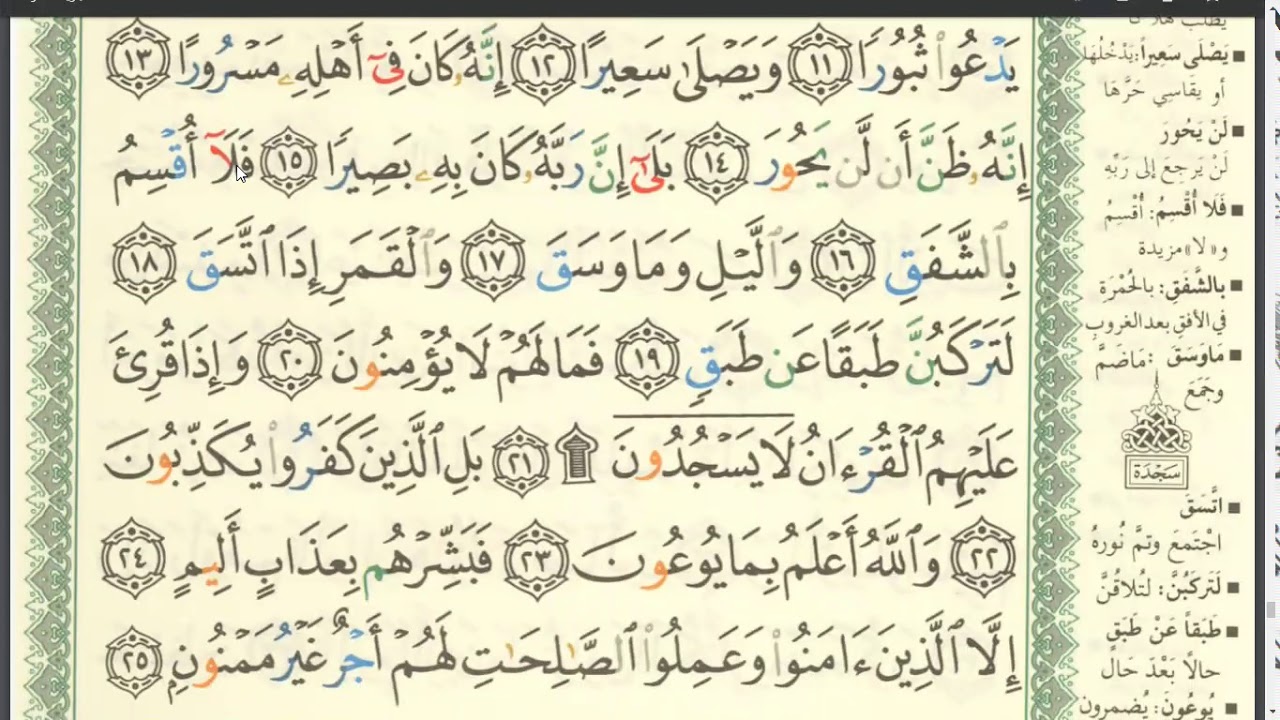 يَدْعُوا۟ ثُبُورًا ١١ وَيَصْلَىٰ سَعِيرًا ١٢ إِنَّهُۥ كَانَ فِىٓ أَهْلِهِۦ مَسْرُورًا ١٣
إِنَّهُۥ ظَنَّ أَن لَّن يَحُورَ ١٤ بَلَىٰٓ إِنَّ رَبَّهُۥ كَانَ بِهِۦ بَصِيرًا ١٥ فَلَآ أُقْسِمُ
بِٱلشَّفَقِ ١٦ وَٱلَّيْلِ وَمَا وَسَقَ ١٧ وَٱلْقَمَرِ إِذَا ٱتَّسَقَ ١٨
لَتَرْكَبُنَّ طَبَقًا عَن طَبَقٍ ١٩ فَمَا لَهُمْ لَا يُؤْمِنُونَ ٢٠ وَإِذَا قُرِئَ
عَلَيْهِمُ ٱلْقُرْءَانُ لَا يَسْجُدُونَ ۩ ٢١ بَلِ ٱلَّذِينَ كَفَرُوا۟ يُكَذِّبُونَ
٢٢ وَٱللَّهُ أَعْلَمُ بِمَا يُوعُونَ ٢٣ فَبَشِّرْهُم بِعَذَابٍ أَلِيمٍ ٢٤
إِلَّا ٱلَّذِينَ ءَامَنُوا۟ وَعَمِلُوا۟ ٱلصَّٰلِحَٰتِ لَهُمْ أَجْرٌ غَيْرُ مَمْنُونٍۭ ٢٥
يَصْلَى سَعِيراً: يَدْخُلُهَا
أو يقَاسِي حَرَّهَا
لَنْ يَحُورَ
لَنْ يَرجِعَ إلى رَبِّهِ
فَلَا أُقْسِمُ: أُقْسِمُ
و«لا» مزيدة
بالشَّفَقِ: بالحُمْرَةِ
في الأفقِ بعد الغروبِ
مَا وَسَقَ: مَا ضَمَّ
وجَمَعَ
سَجْدَة
اتَّسَقَ
اجْتمَعَ وتَمَّ نُورهُ
لَتَركَبُنَّ: لتُلاقُنَّ
طَبَقاً عَنْ طَبَقٍ
حالًا بَعْدَ حَال
يُوعُونَ: يُضمرون